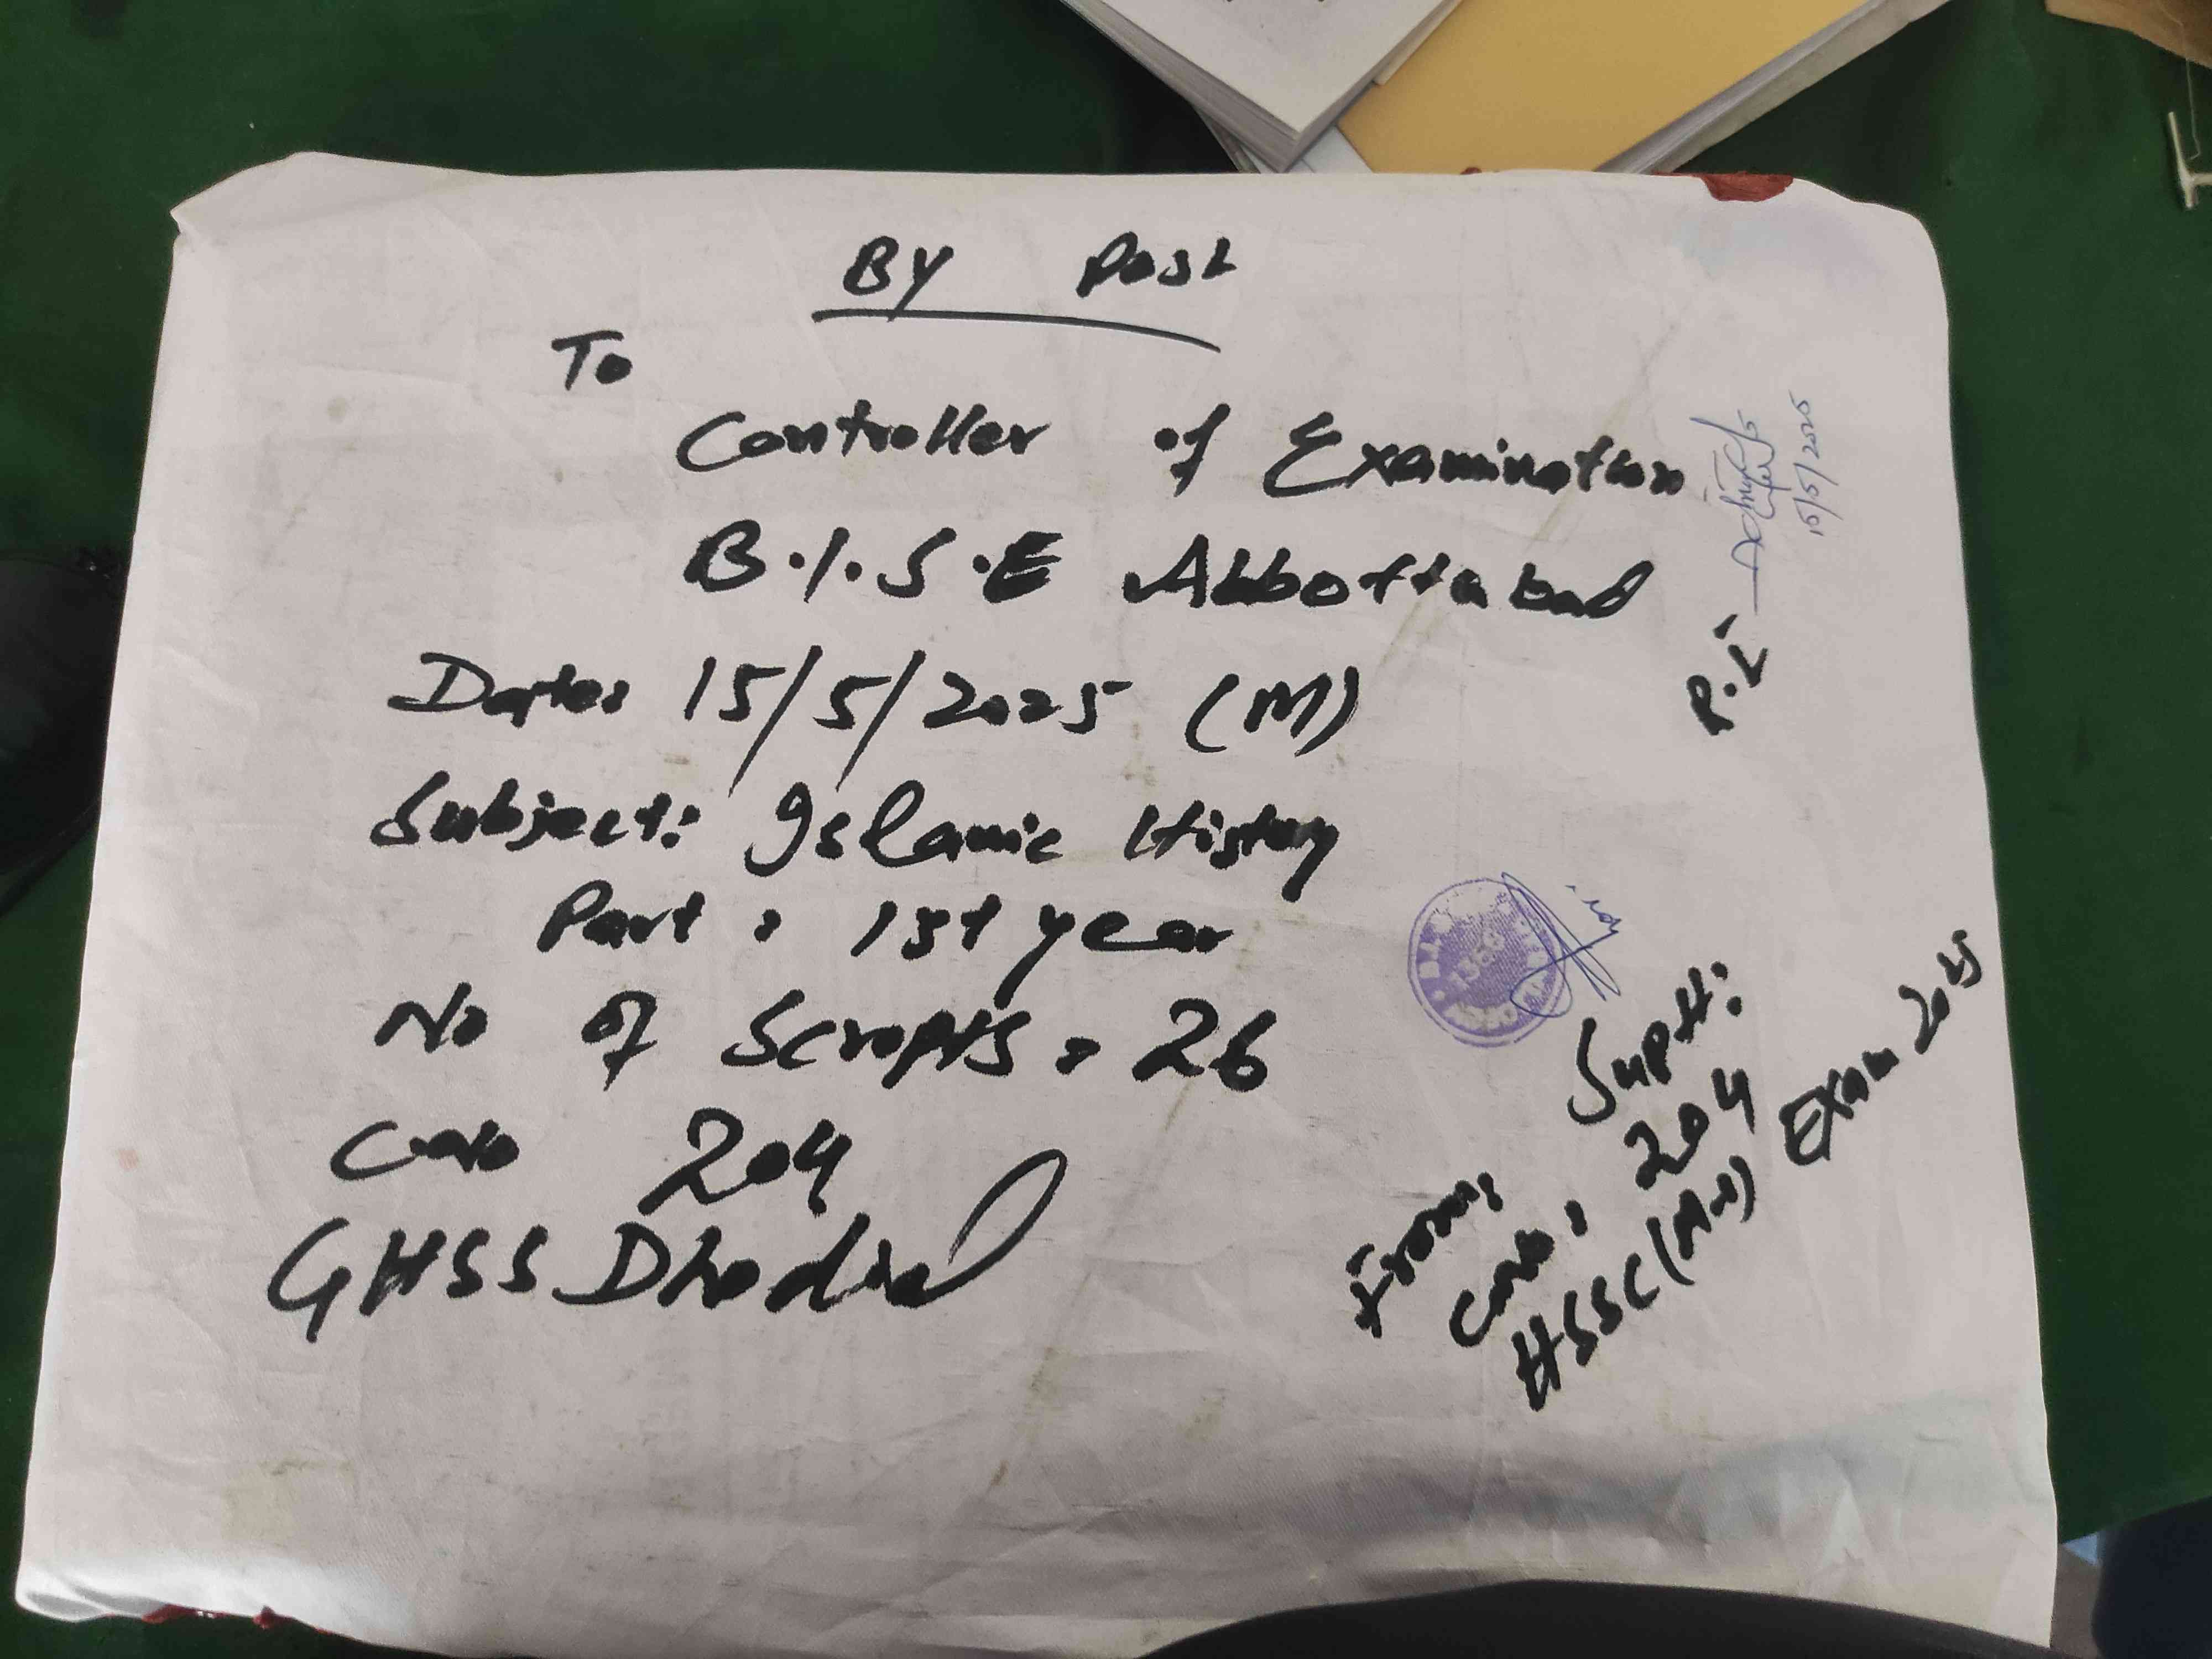 By Post
To
Controller of Examination
B.I.S.E Abbottabad
Date: 15/5/2025 (M)
Subject: Islamic History
Part: 1st year
No of Scripts: 26
204
GHSS Dhodial
R.I
15/5/2025
From:
Suptt:
204
HSSC (A-I) Exam 2025